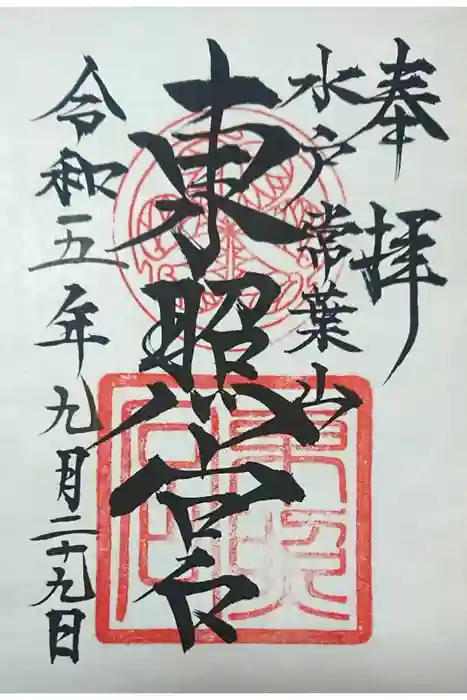 奉拝
水戸常葉山
東照宮
令和五年九月二十九日
東照
宮